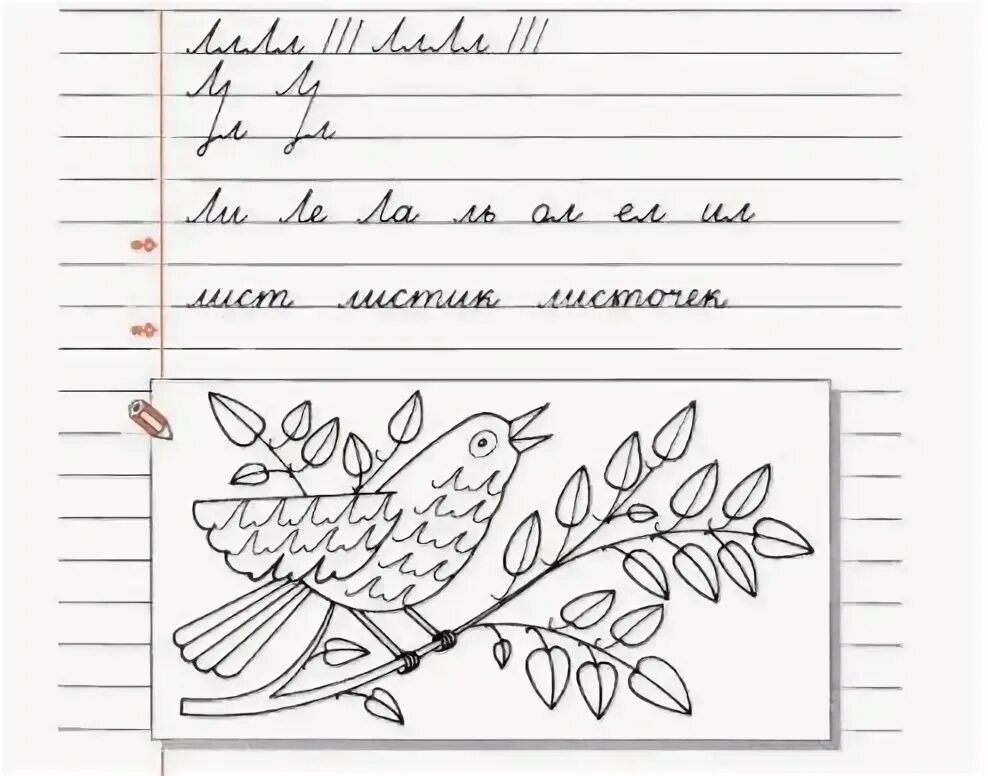 ЛлЛл /// ллЛл ///
Ли Ле Ла ль ол ел ил
лист листик листочек